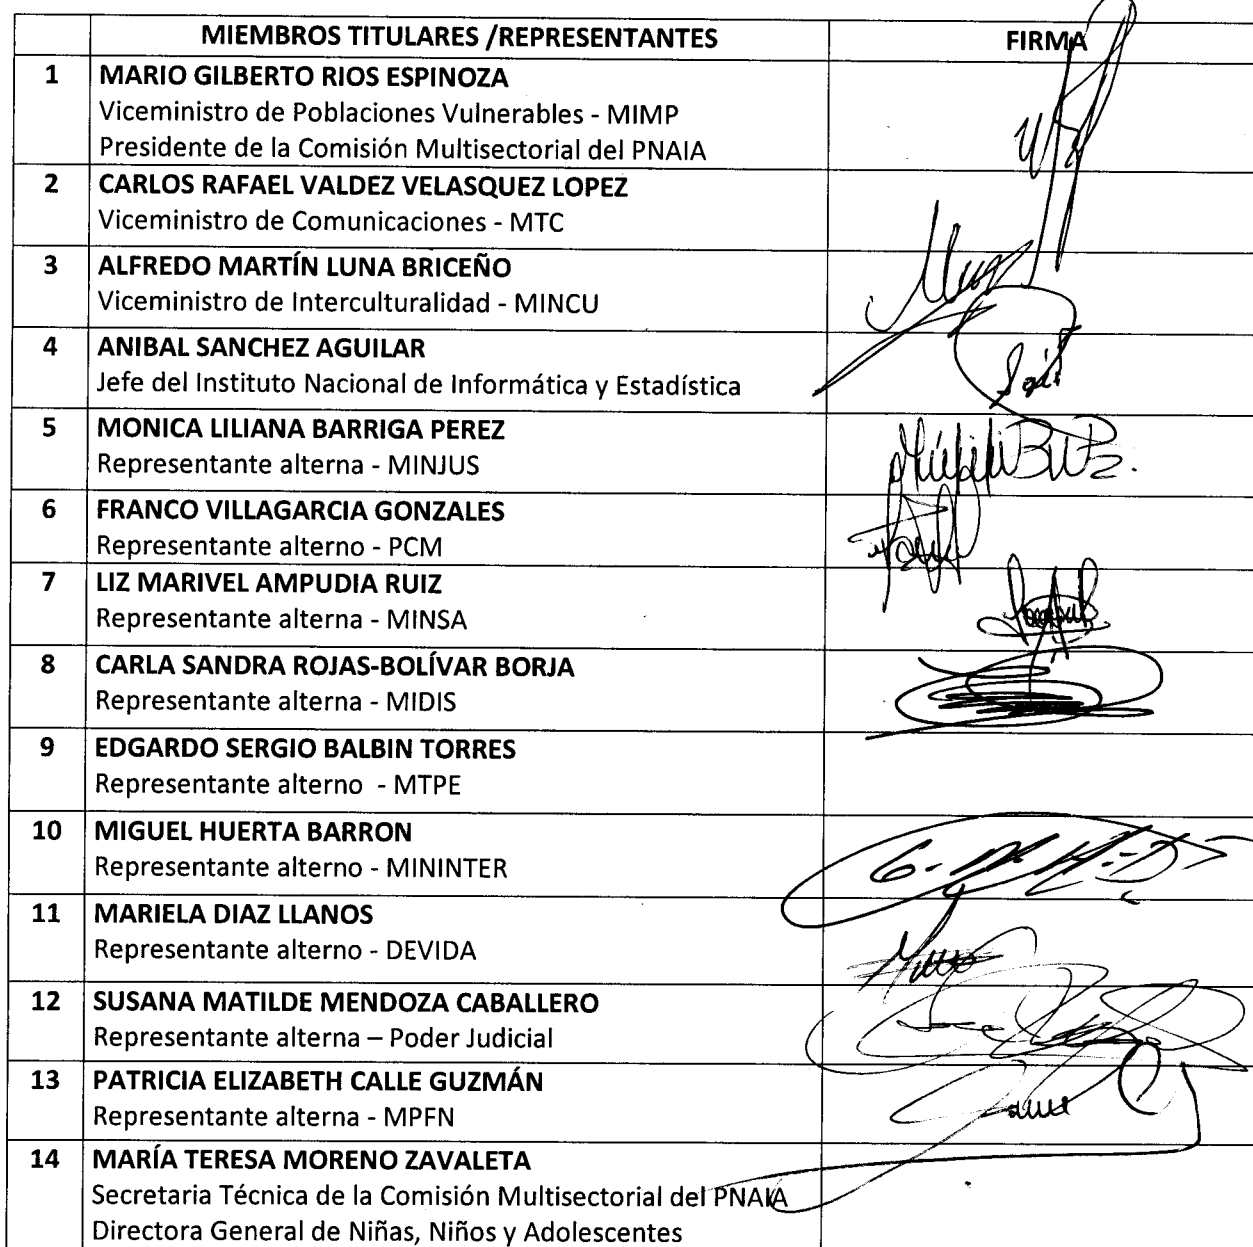 MIEMBROS TITULARES /REPRESENTANTES FIRMA
1 MARIO GILBERTO RIOS ESPINOZA
Viceministro de Poblaciones Vulnerables - MIMP
Presidente de la Comisión Multisectorial del PNAIA
2 CARLOS RAFAEL VALDEZ VELASQUEZ LOPEZ
Viceministro de Comunicaciones - MTC
3 ALFREDO MARTÍN LUNA BRICEÑO
Viceministro de Interculturalidad - MINCU
4 ANIBAL SANCHEZ AGUILAR
Jefe del Instituto Nacional de Informática y Estadística
5 MONICA LILIANA BARRIGA PEREZ
Representante alterna - MINJUS
6 FRANCO VILLAGARCIA GONZALES
Representante alterno - PCM
7 LIZ MARIVEL AMPUDIA RUIZ
Representante alterna - MINSA
8 CARLA SANDRA ROJAS-BOLÍVAR BORJA
Representante alterna - MIDIS
9 EDGARDO SERGIO BALBIN TORRES
Representante alterno - MTPE
10 MIGUEL HUERTA BARRON
Representante alterno - MININTER
11 MARIELA DIAZ LLANOS
Representante alterno - DEVIDA
12 SUSANA MATILDE MENDOZA CABALLERO
Representante alterna – Poder Judicial
13 PATRICIA ELIZABETH CALLE GUZMÁN
Representante alterna - MPFN
14 MARÍA TERESA MORENO ZAVALETA
Secretaria Técnica de la Comisión Multisectorial del PNAIA
Directora General de Niñas, Niños y Adolescentes